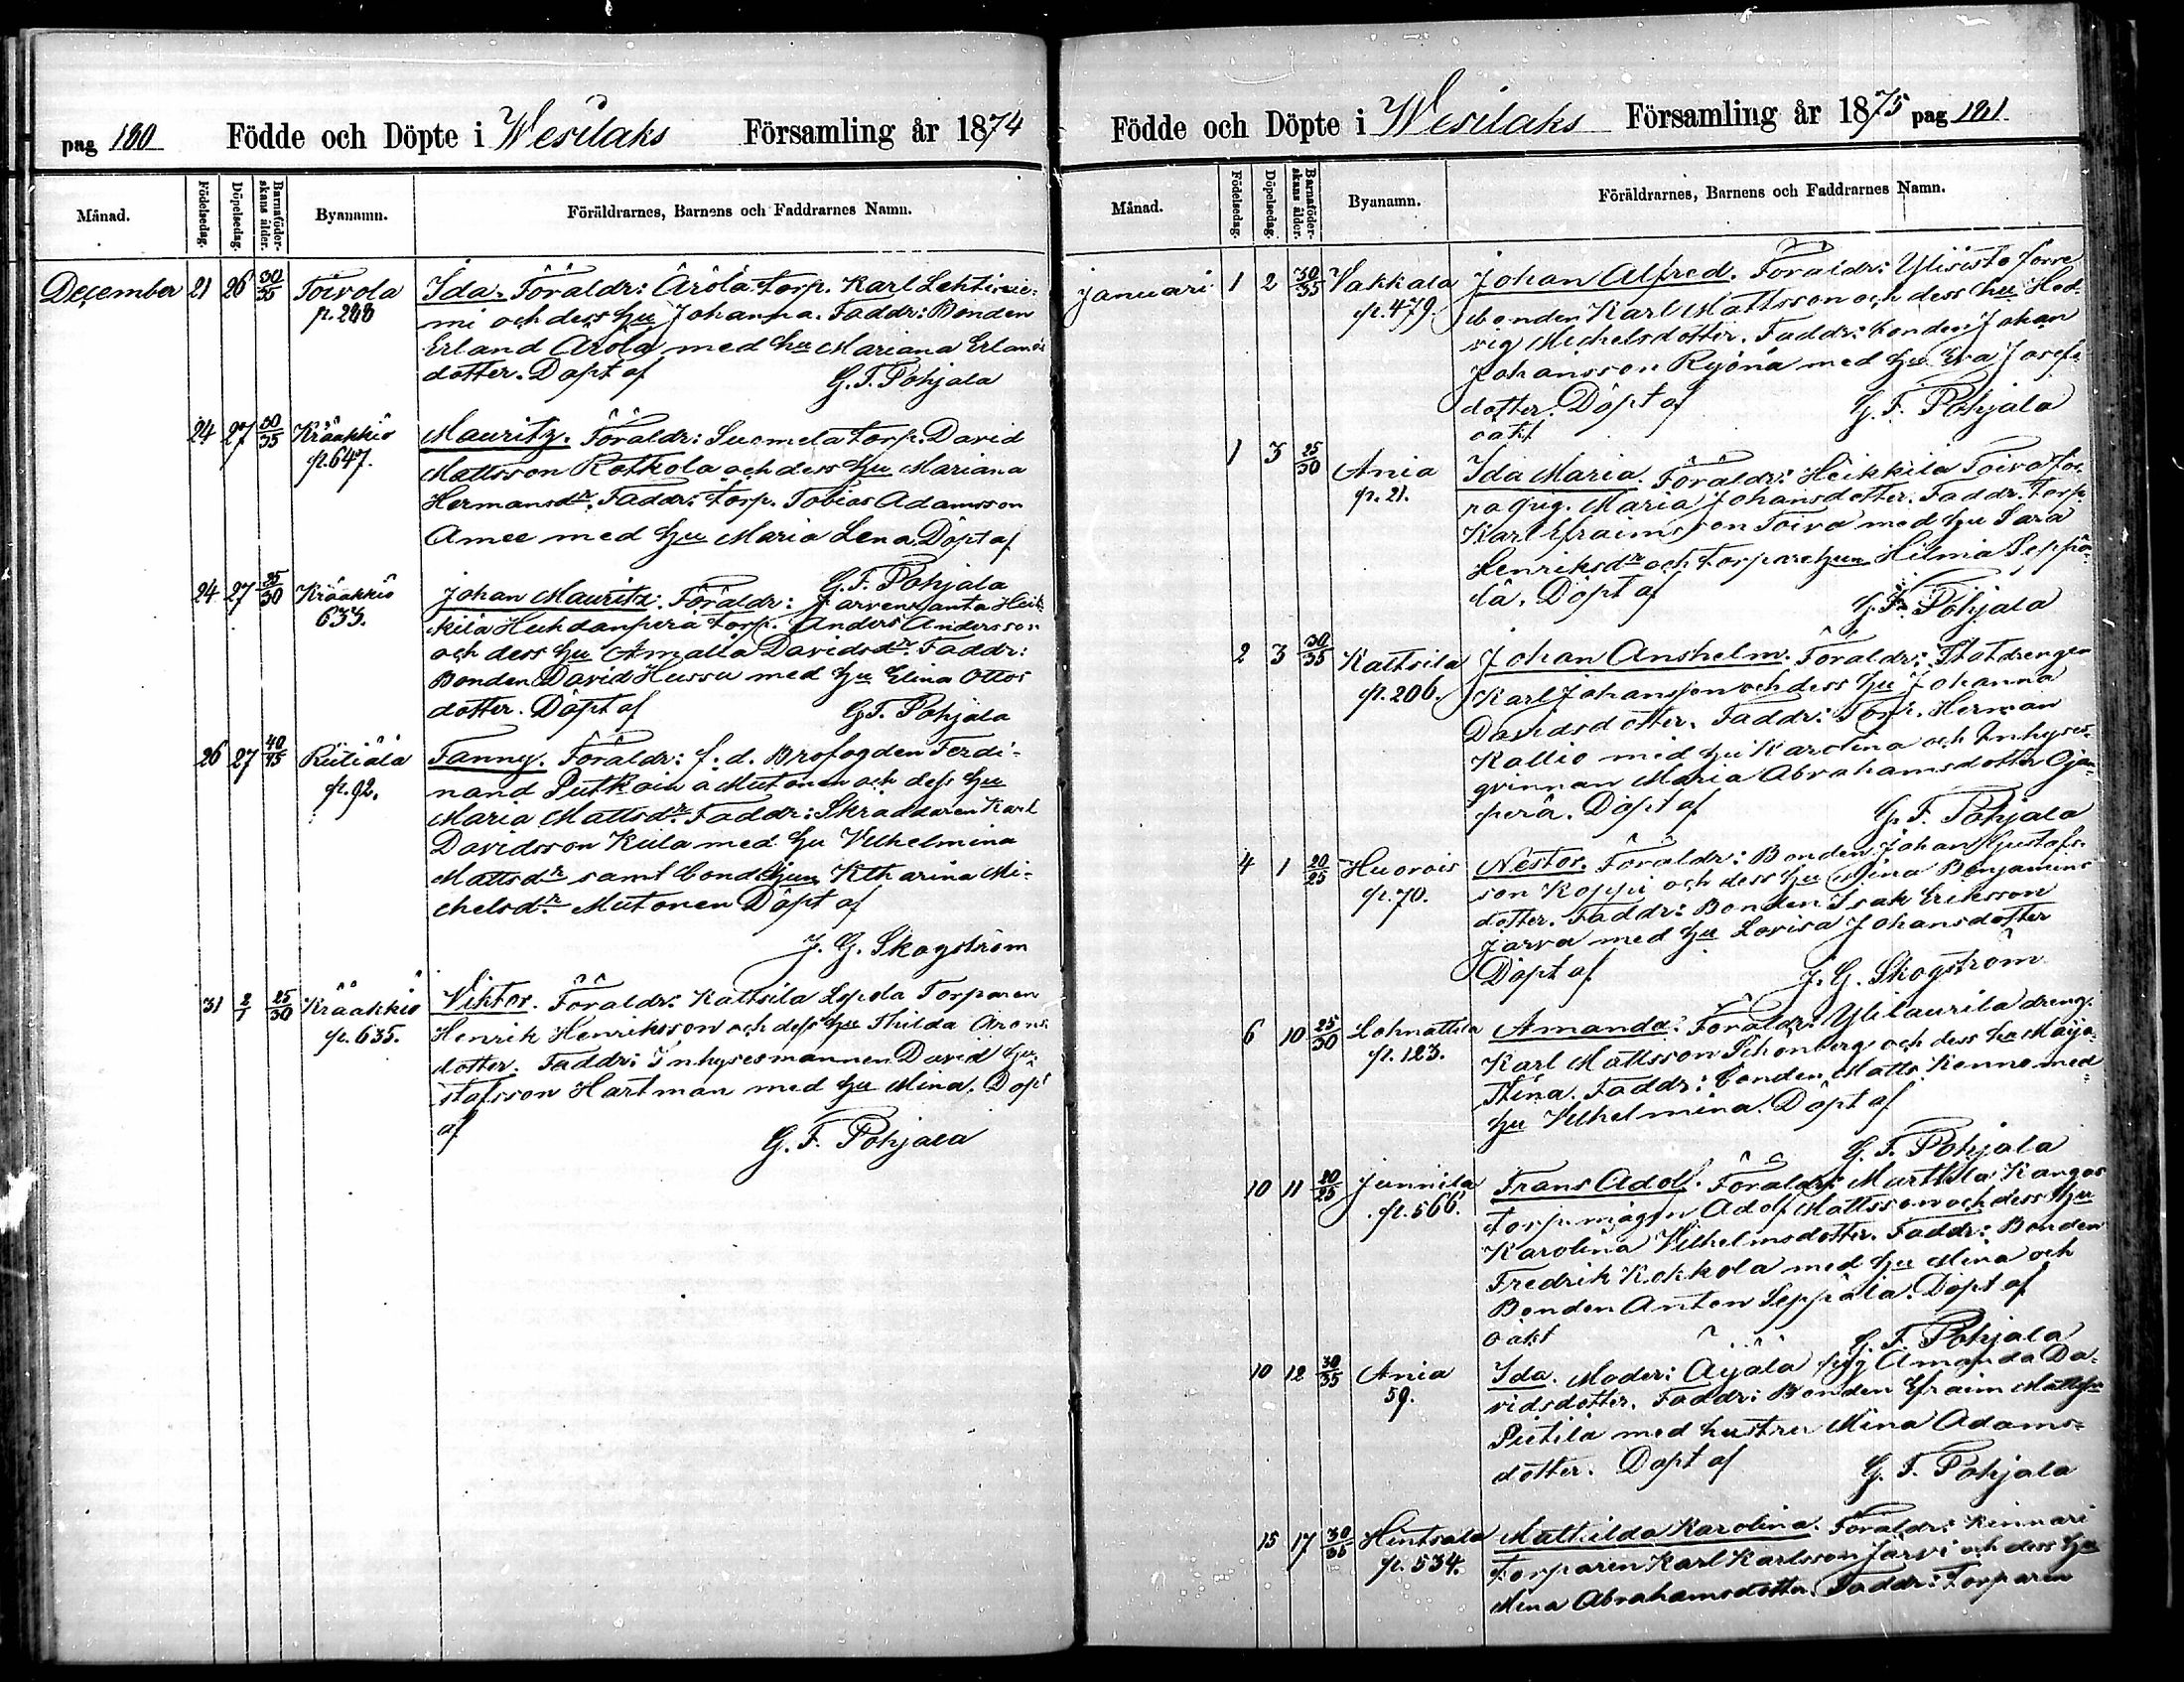 pag 180 Födde och Döpte i Wesilaks Församling år 1874
Månad. Födelsedag. Döpelsedag. Barnaföderskans ålder. Byanamn. Föräldrarnes, Barnens och Faddrarnes Namn.
December 21 26 30/35 Toivola Ida. Föräldr: Arola torp. Karl Lehtinie-
p. 248 mi och dess hu Johanna. Faddr: Bonden
Erland Arola med hu Mariana Erlands
dotter. Döpt af G. F. Pohjala
24 27 30/35 Krääkkiö Mauritz. Föräldr: Suomela torp. David
p. 647. Mattsson Rotkola och dess hu Mariana
Hermansdr. Faddr: torp. Tobias Adamsson
Amee med hu Maria Lena. Döpt af
G. F. Pohjala
24 27 25/30 Krääkkiö Johan Mauritz. Föräldr: Järvenranta Heik-
633. kilä Huhdanperä torp. Anders Andersson
och dess hu Amalia Davidsdr. Faddr:
Bonden David Hussa med hu Elina Ottos
dotter. Döpt af G. F. Pohjala
26 27 40/45 Rutiala Fanny. Föräldr: f. d. Brofogden Ferdi-
p. 92. nand Mutonen och dess hu
Maria Mattsdr. Faddr: Skräddaren Karl
Davidsson Kiila med hu Vilhelmina
Mattsdr samt bondhun Ktharina Mi-
chelsdr. Mutonen Döpt af
J. G. Skogström
31 2/1 25/30 Krääkkiö Viktor. Föräldr: Kaltsila Lepola Torparen
p. 635. Henrik Henriksson och dess hu Thilda Arons
dotter. Faddr: Inhysesmannen David Gu-
stafsson Hartman med hu Mina. Döpt
af
G. F. Pohjala
Födde och Döpte i Wesilaks Församling år 1875 pag 181.
Månad. Födelsedag. Döpelsedag. Barnaföderskans ålder. Byanamn. Föräldrarnes, Barnens och Faddrarnes Namn.
Januari 1 2 30/35 Vakkala Johan Alfred. Föräldr: Ylisisto förre
p. 479. bonden Karl Mattsson och dess hu Hed-
vig Michelsdotter. Faddr: bonden Johan
Johansson Ryönä med hu Eva Josefs
dotter. Döpt af G. F. Pohjala
oäkt
1 3 25/30 Ania Ida Maria. Föräldr: Heikkilä Toiva
p. 21. pig. Maria Johansdotter. Faddr. Torp.
Karl Efraimsson Toiva med hu Sara
Henriksdr och torparehun Hilma Seppä-
lä. Döpt af
G. F. Pohjala
2 3 30/35 Kaltsila Johan Anshelm. Föräldr: Statdrengen
p. 206. Karl Johansson och dess hu Johanna
Davidsdotter. Faddr: Torp. Herman
Kallio med hu Karolina och Inhyses-
qvinnan Maria Abrahamsdotter Ojan-
perä. Döpt af G. F. Pohjala
4 1 20/25 Huorois Nestor. Föräldr: Bonden Johan Gustafs-
p. 70. son Koppi och dess hu Mina Benjamins
dotter. Faddr: Bonden Isak Eriksson
Jarva med hu Lovisa Johansdotter
Döpt af J. G. Skogström
6 10 25/30 Lahnattila Amanda. Föräldr: Ylilaurila dreng.
p. 123. Karl Mattsson Schönberg och dess hu Maja
Stina. Faddr: bonden Matts Konno med
hu Vilhelmina. Döpt af
G. F. Pohjala
10 11 20/25 Junnila Frans Adolf. Föräldr: Marttila Kangas
p. 566. torp.mågen Adolf Mattsson och dess hu
Karolina Vilhelmsdotter. Faddr: Bonden
Fredrik Kokkola med hu Mina och
Bonden Anton Seppälä. Döpt af
oäkt G. F. Pohjala
10 12 30/35 Ania Ida. Moder: Äijälä pig Amanda Da-
59. vidsdotter. Faddr: Bonden Efraim Mattsson
Piitila med hustru Mina Adams-
dotter. Döpt af G. F. Pohjala
15 17 30/35 Hintsala Mathilda Karolina. Föräldr: Kinnari
p. 534. torparen Karl Karlsson Järvi och dess hu
Mina Abrahamsdotter. Faddr: Torparen